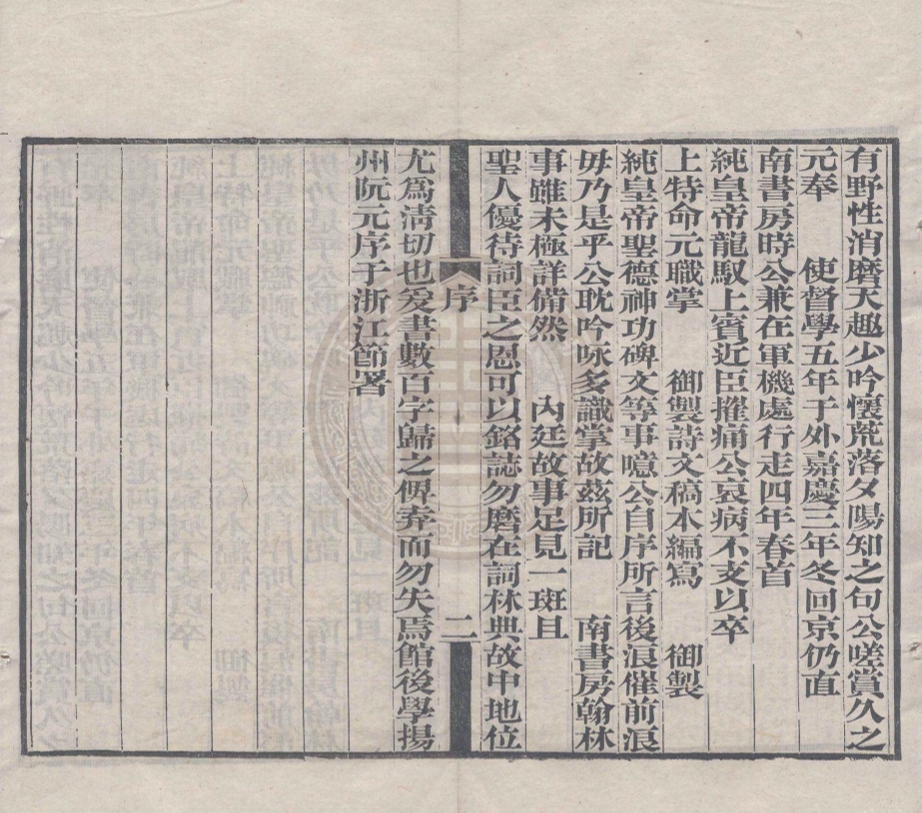 有野性消磨天趣少吟懷荒落夕陽知之句公嗟賞久之
元奉　使督學五年于外嘉慶三年冬回京仍直
南書房時公兼在軍機處行走四年春首
純皇帝龍馭上賓近臣摧痛公哀病不支以卒
上特命元職掌　御製詩文稿本編寫　御製
純皇帝聖德神功碑文等事噫公自序所言後浪催前浪
毋乃是乎公耽吟咏多識掌故茲所記　南書房翰林
事雖未極詳備然　內廷故事足見一斑且
聖人優待詞臣之恩可以銘誌勿磨在詞林典故中地位
序　二
尤爲淸切也爰書數百字歸之俾弆而勿失焉館後學揚
州阮元序于浙江節署